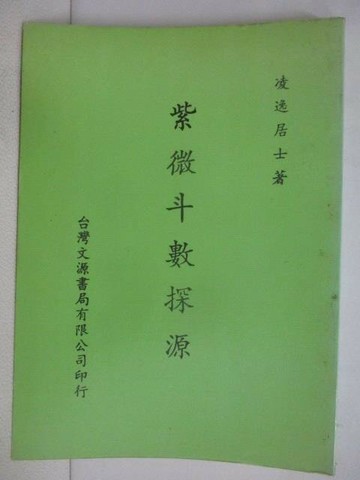 凌逸居士著
紫微斗數探源
台灣文源書局有限公司印行